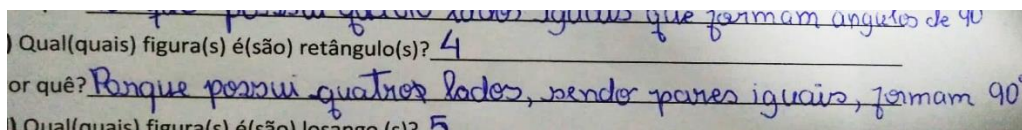 que possui quatro lados iguais que formam angulos de 90
) Qual(quais) figura(s) é(são) retângulo(s)? 4
or quê? Porque possui quatros lados, sendo pares iguais, formam 90°
) Qual(quais) figura(s) é(são) losango (s)? 5